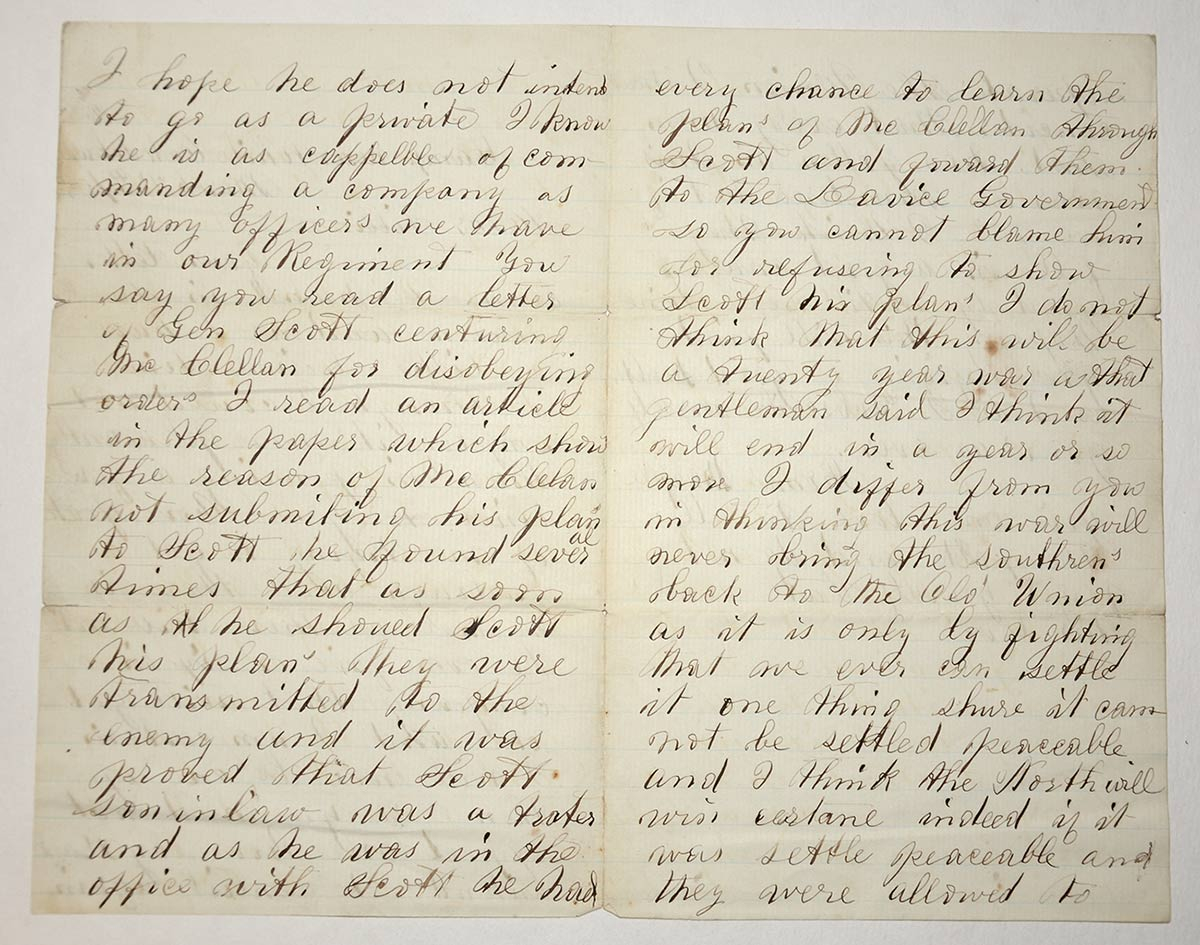 I hope he does not intend
to go as a private I know
he is as cappelble of com
manding a company as
many officers we have
in our Regiment You
say you read a letter
of Gen Scott centuring
Mc Clellan for disobeying
orders I read an article
in the paper which show
the reason of Mc Clelan
not submiting his plan
to Scott he found sever
al
times that as soon
as he shoued Scott
his plans they were
transmitted to the
enemy and it was
proved that Scott
soninlaw was a trater
and as he was in the
office with Scott he had
every chance to learn the
plans of Mc Clellan through
Scott and foward them
to the Davice Government
so you cannot blame him
for refuseing to show
Scott his plans I do not
think that this will be
a tuenty year war as that
gentleman said I think it
will end in a year or so
more I differ from you
in thinking this war will
never bring the southrens
back to the Old Union
as it is only by fighting
that we ever can settle
it one thing shure it cam
not be settled peaceable
and I think the North will
win certane indeed if it
was settle peaceable and
they were allowed to